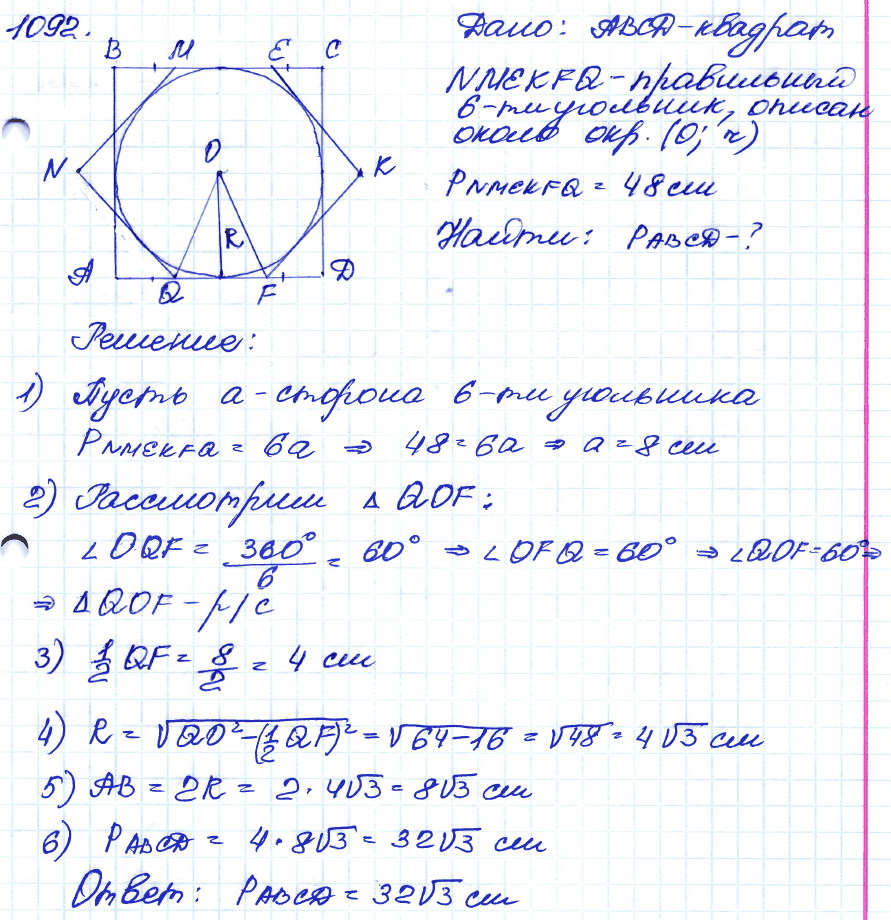 1092.
B M E C
N O K
R
A Q F D
Дано: ABCD-квадрат
NMEKFQ-правильный
6-ти угольник, описан
около окр. (O; r)
PNMEKFQ = 48 см
Найти: PABCD-?
Решение:
1) Пусть a-сторона 6-ти угольника
PNMEKFQ = 6a ⇒ 48=6a ⇒ a=8 см
2) Рассмотрим △ QOF:
∠OQF = 360°/6 = 60° ⇒ ∠OFQ = 60° ⇒ ∠QOF=60° ⇒
⇒ △QOF - р/с
3) 1/2 QF = 8/2 = 4 см
4) R = √(QO²-(1/2 QF)²) = √(64-16) = √48 = 4√3 см
5) AB = 2R = 2·4√3 = 8√3 см
6) PABCD = 4·8√3 = 32√3 см
Ответ: PABCD = 32√3 см